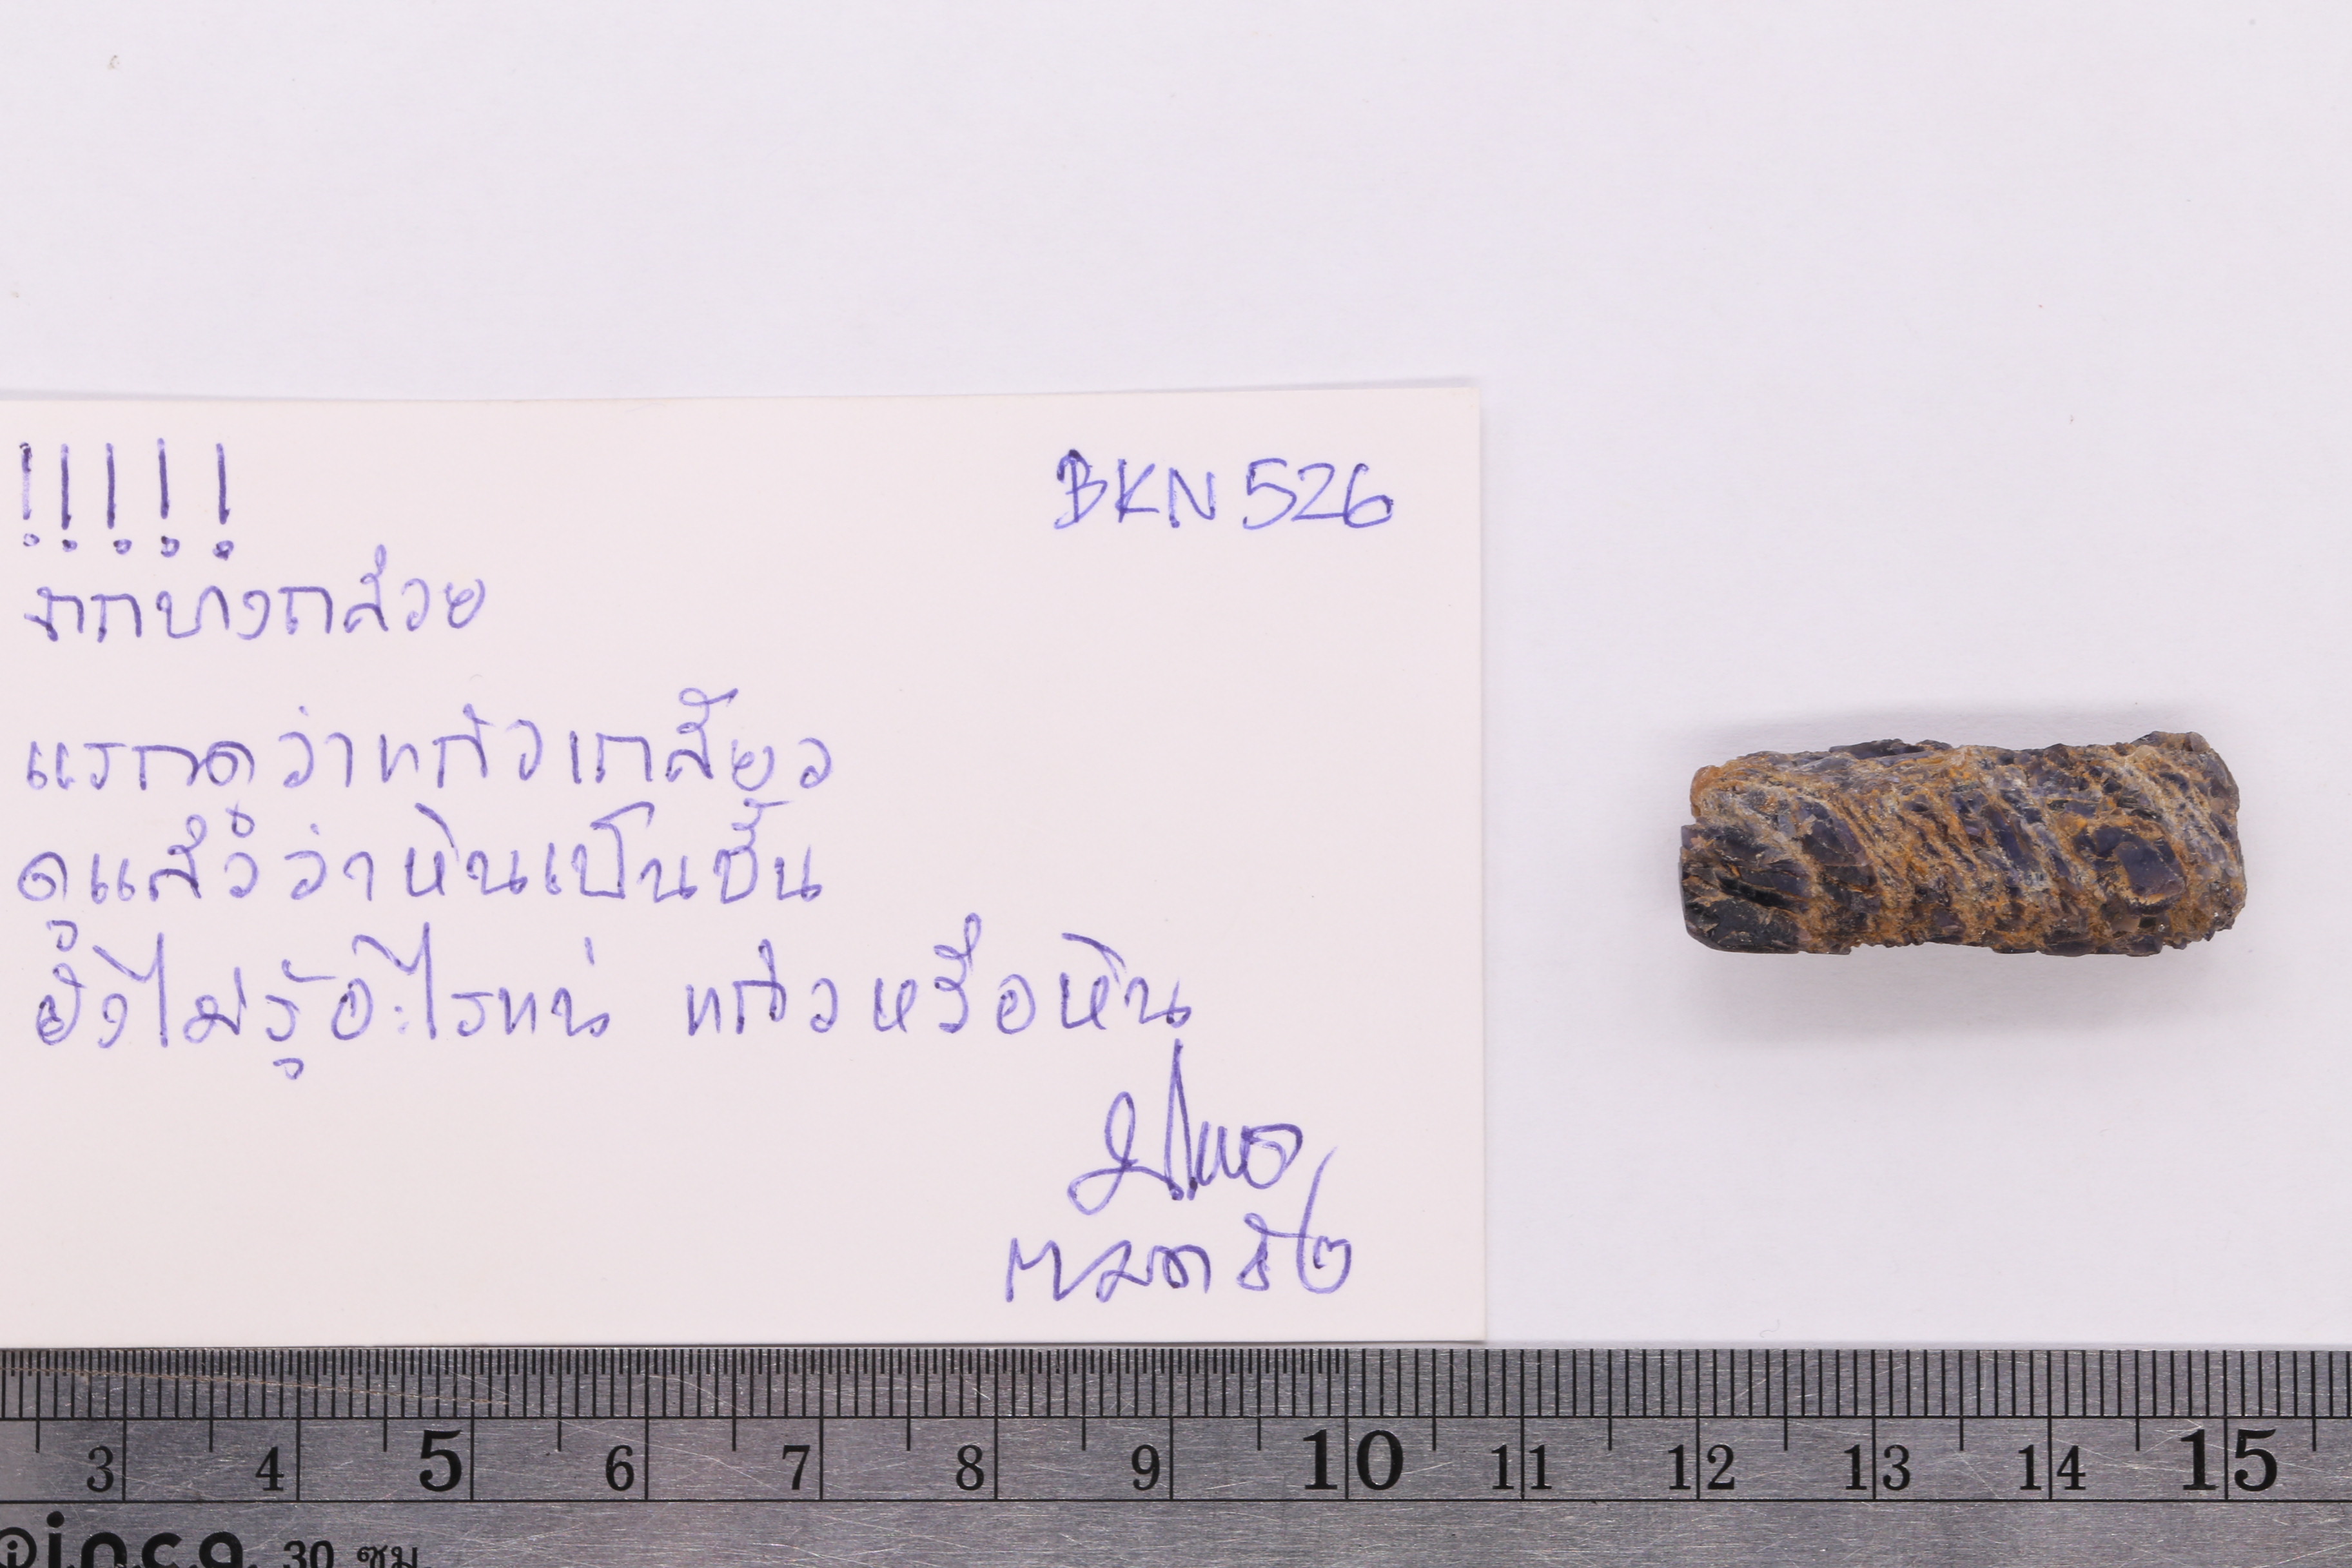 !!!!!
BKN 526
จากบางกล้วย
แรกดูว่าแก้วเกลียว
ดูแล้วว่าหินเป็นชั้น
ยังไม่รู้อะไรแน่ แก้วหรือหิน
3 4 5 6 7 8 9 10 11 12 13 14 15
30 ซม.